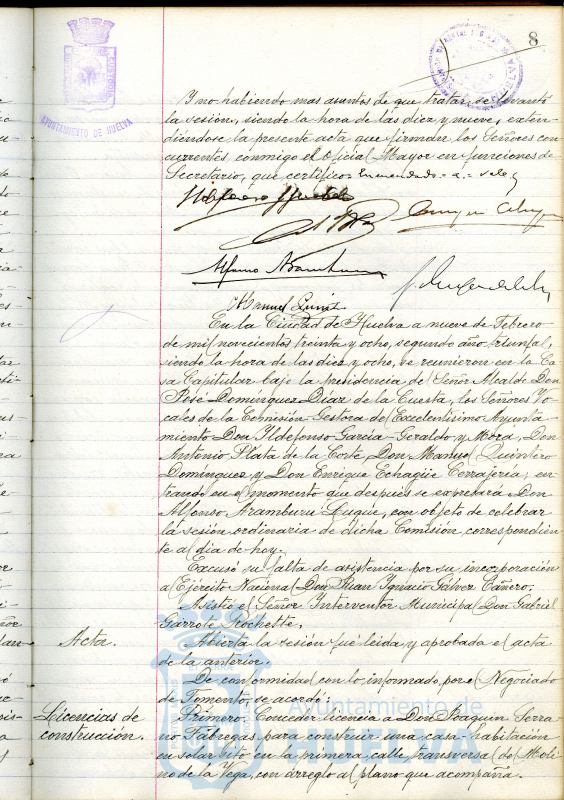 8
AYUNTAMIENTO DE HUELVA
Y no habiendo mas asuntos de que tratar, se levantó
la sesión, siendo la hora de las diez y nueve, exten-
diéndose la presente acta que firman los Señores con-
currentes conmigo el Oficial Mayor en funciones de
Secretario, que certifico. Enmendado = a = vale
Alfonso Aramburu
Manuel Quint
En la Ciudad de Huelva a nueve de Febrero
de mil novecientos treinta y ocho, segundo año triunfal,
siendo la hora de las diez y ocho, se reunieron en la Ca-
sa Capitular bajo la presidencia del Señor Alcalde Don
José Domínguez Díaz de la Cuesta, los Señores Vo-
cales de la Comisión Gestora del Excelentísimo Ayunta-
miento Don Ildefonso García-Geraldo y Mora, Don
Antonio Plata de la Corte, Don Manuel Quintero
Domínguez y Don Enrique Echagüe Cerrajería, en-
trando en el momento que después se expresará Don
Alfonso Aramburu Luque, con objeto de celebrar
la sesión ordinaria de dicha Comisión, correspondien-
te al día de hoy.
Excusó su falta de asistencia por su incorporación
al Ejército Nacional Don Juan Ignacio Gálvez Cañero.
Asistió el Señor Interventor Municipal Don Gabriel
Garrote Rocheste.
Acta.
Abierta la sesión fué leída y aprobada el acta
de la anterior.
De conformidad con lo informado por el Negociado
de Fomento, se acordó:
Licencias de
construcción.
Primero. Conceder licencia a Don Joaquín Serra-
no Fábregas para construir una casa-habitación
en solar sito en la primera calle transversal del Moli-
no de la Vega, con arreglo al plano que acompaña.
Ayuntamiento de
HUELVA